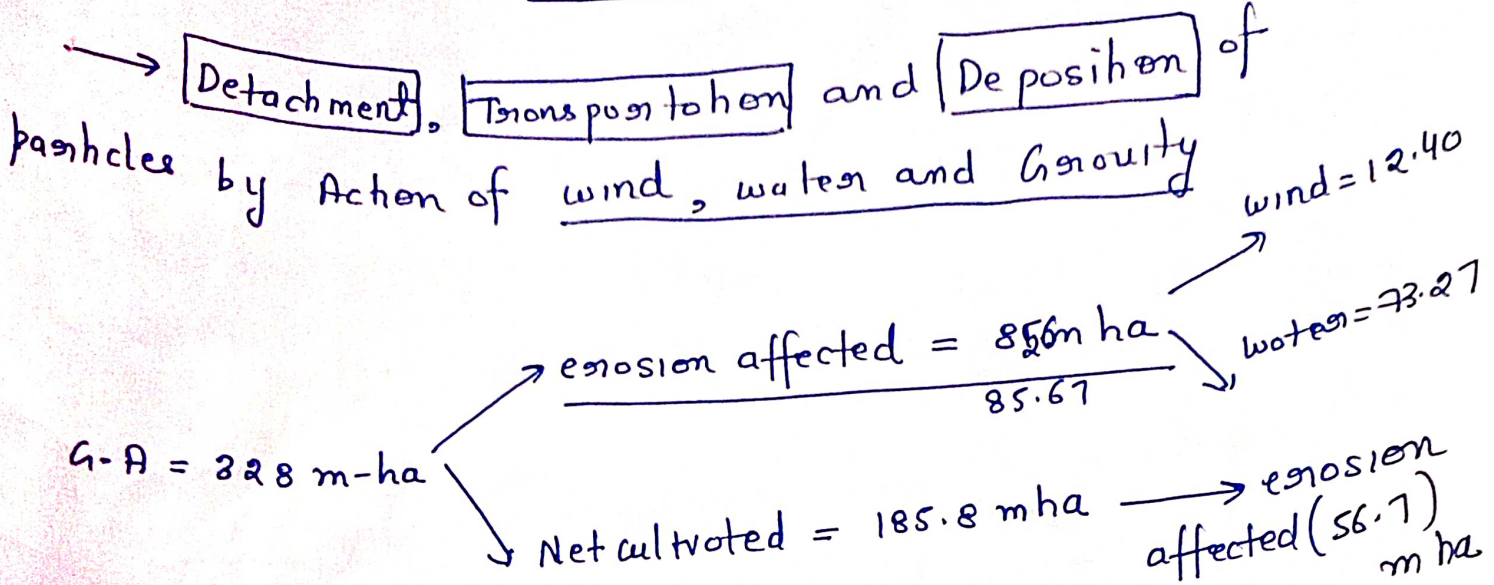 → Detachment, Transportation and Deposition of
particles by Action of wind, water and Gravity
wind = 12.40
erosion affected = 856m ha
85.67
water = 73.27
G-A = 328 m-ha
Net cultivated = 185.8 mha → erosion
affected (56.7)
m ha